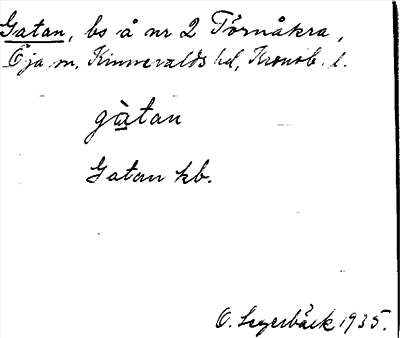 Gatan, bs å nr 2 Törnåkra,
Öja sn, Kinnevalds hd, Kronob. l.
gàtan
Gatan kb.
O. Segerbäck 1935.